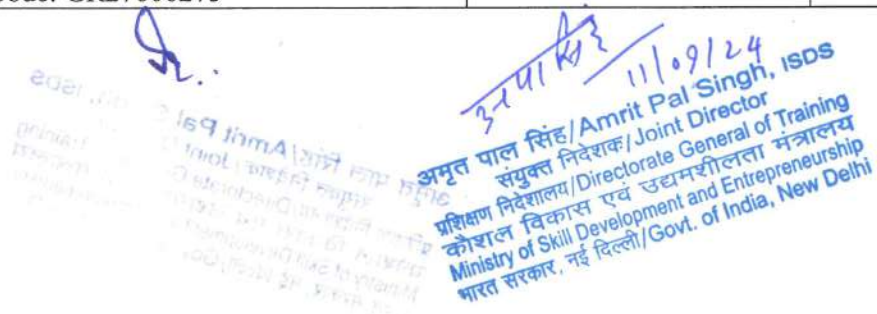 11/09/24
अमृत पाल सिंह/Amrit Pal Singh, ISDS
संयुक्त निदेशक/Joint Director
प्रशिक्षण निदेशालय/Directorate General of Training
कौशल विकास एवं उद्यमशीलता मंत्रालय
Ministry of Skill Development and Entrepreneurship
भारत सरकार, नई दिल्ली/Govt. of India, New Delhi